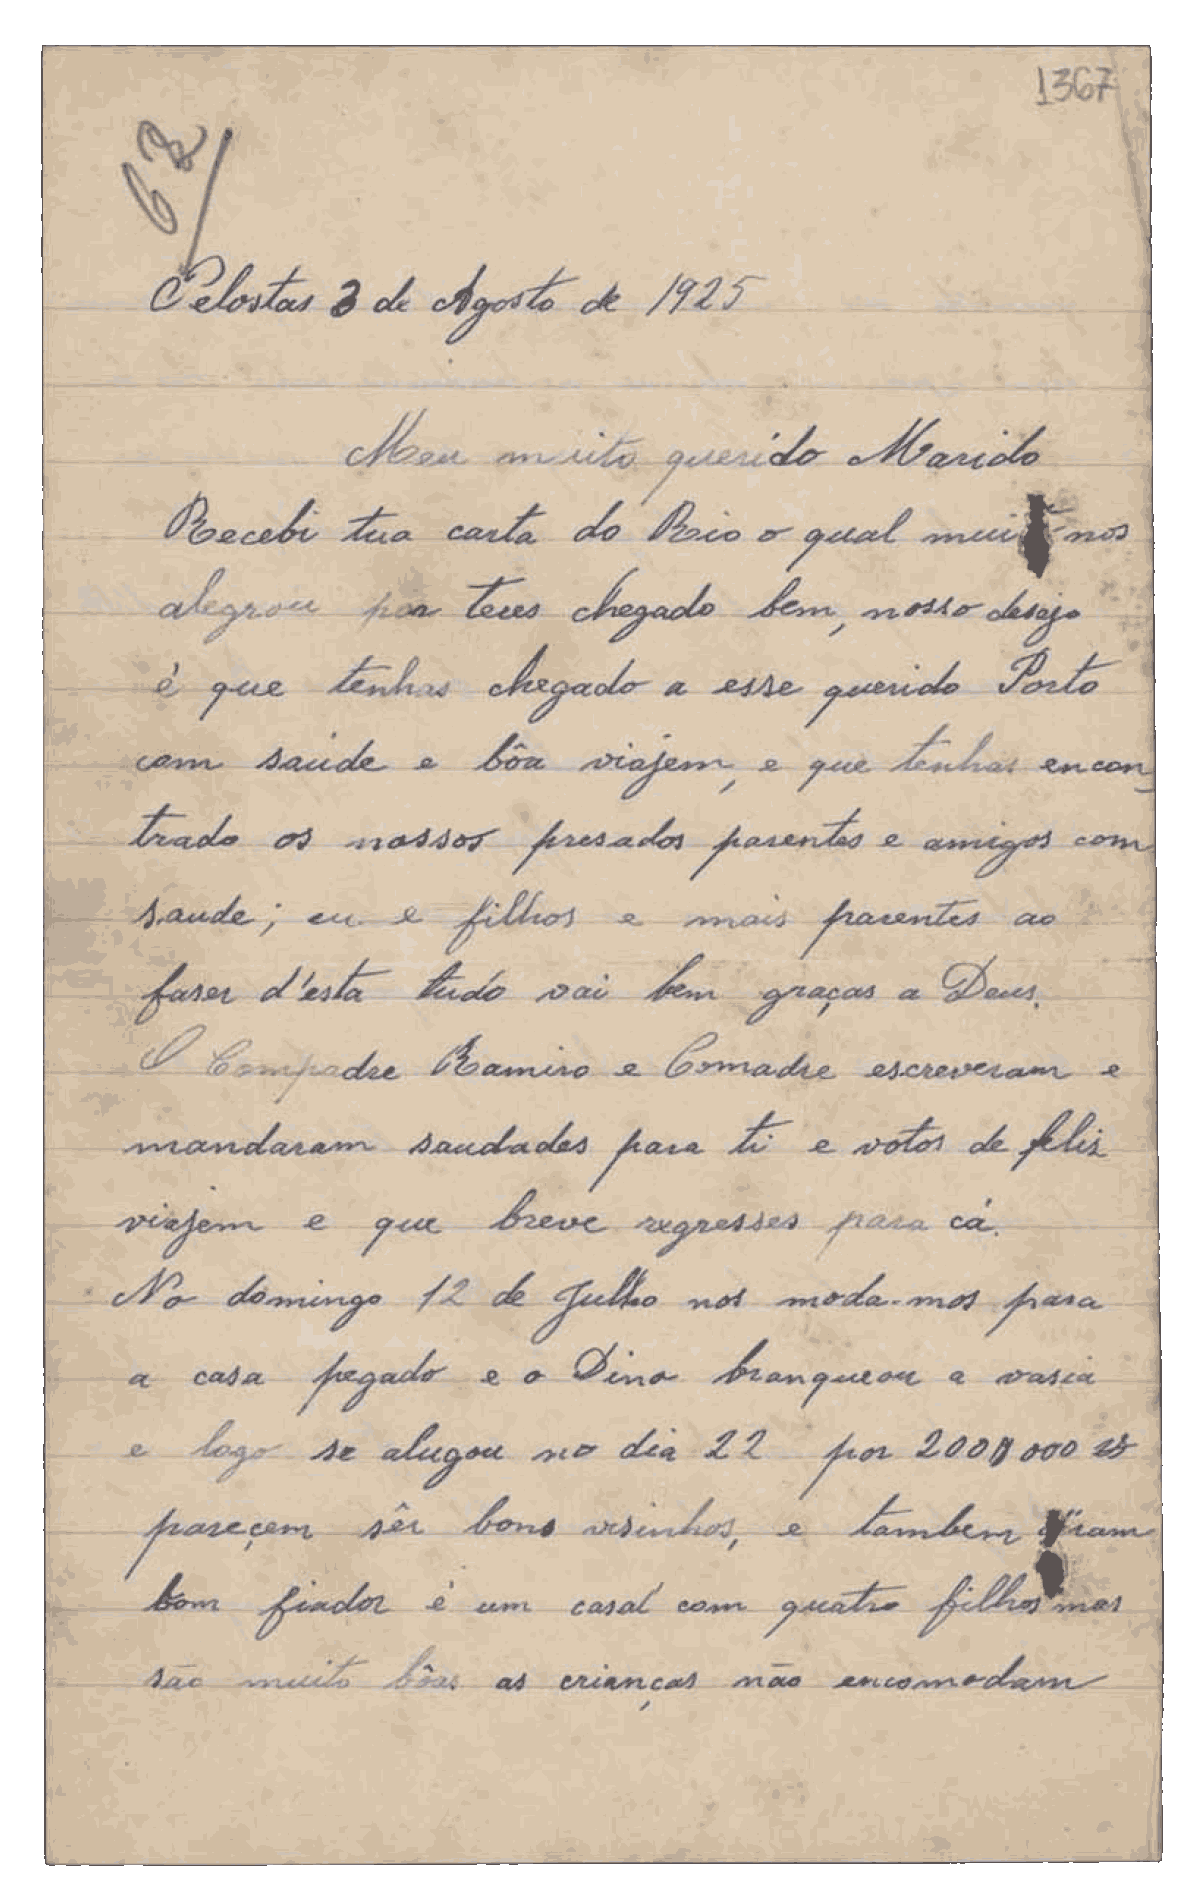 1367
62
Pelostas 3 de Agosto de 1925
Meu muito querido Marido
Recebi tua carta do Rio o qual nos
alegrou por teres chegado bem, nosso desejo
é que tenhas chegado a esse querido Porto
com saúde e bôa viajem, e que tenhas encon_
trado os nossos presados parentes e amigos com
saude; eu e filhos e mais parentes ao
faser d'esta tudo vai bem graças a Deus.
O Compadre Ramiro e Comadre escreveram e
mandaram saudades para ti e votos de felis
viajem e que breve regresses para cá.
No domingo 12 de Julho nos moda-mos para
a casa pegado e o Dino branqueou a vasia
e logo se alugou no dia 22 por 200$000 rs
pareçem sêr bons visinhos, e tambem
bom fiador é um casal com quatro filhos mas
são muito bôas as crianças não encomodam